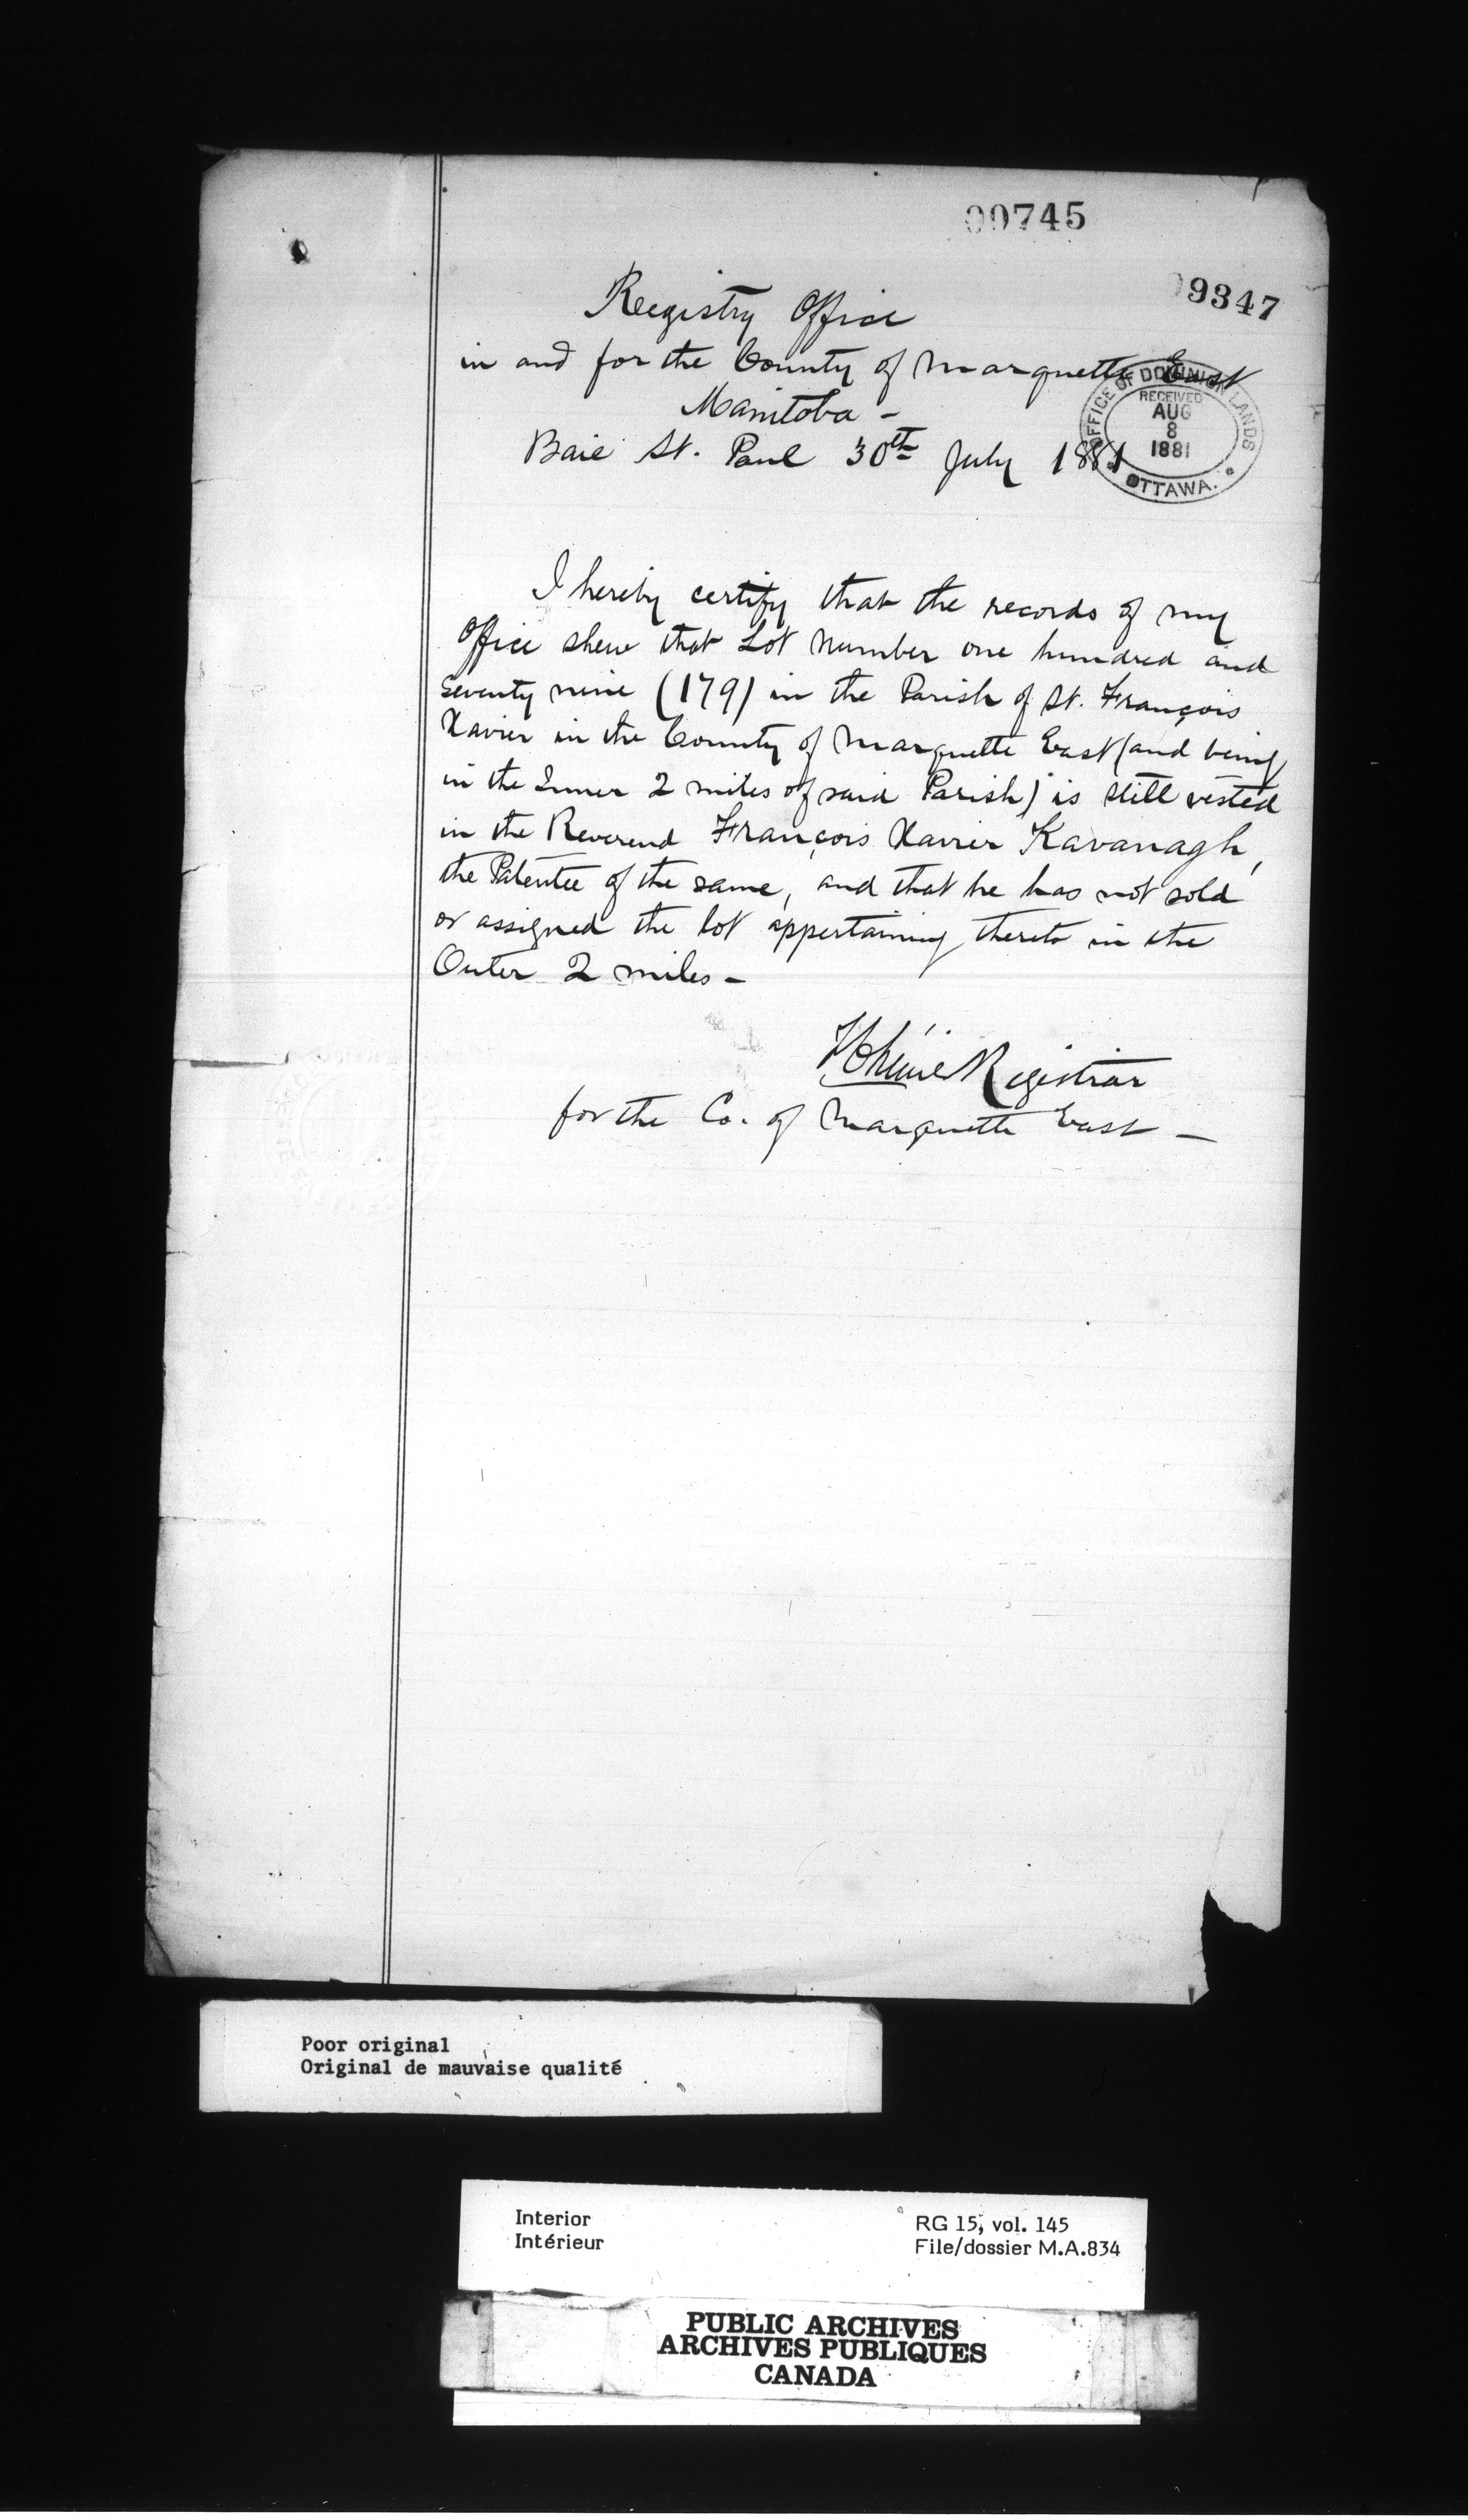 00745
9347
Registry Office
in and for the County of Marquette East
Manitoba -
Baie St. Paul 30th July 1881
OFFICE OF DOMINION LANDS
RECEIVED
AUG
8
1881
OTTAWA.
I hereby certify that the records of my
Office shew that Lot Number one hundred and
seventy nine (179) in the Parish of St. François
Xavier in the County of Marquette East (and being
in the Inner 2 miles of said Parish) is still vested
in the Reverend François Xavier Kavanagh,
the Patentee of the same, and that he has not sold
or assigned the lot appertaining thereto in the
Outer 2 miles -
Registrar
for the Co. of Marquette East -
Poor original
Original de mauvaise qualité
Interior
Intérieur
RG 15, vol. 145
File/dossier M.A.834
PUBLIC ARCHIVES
ARCHIVES PUBLIQUES
CANADA